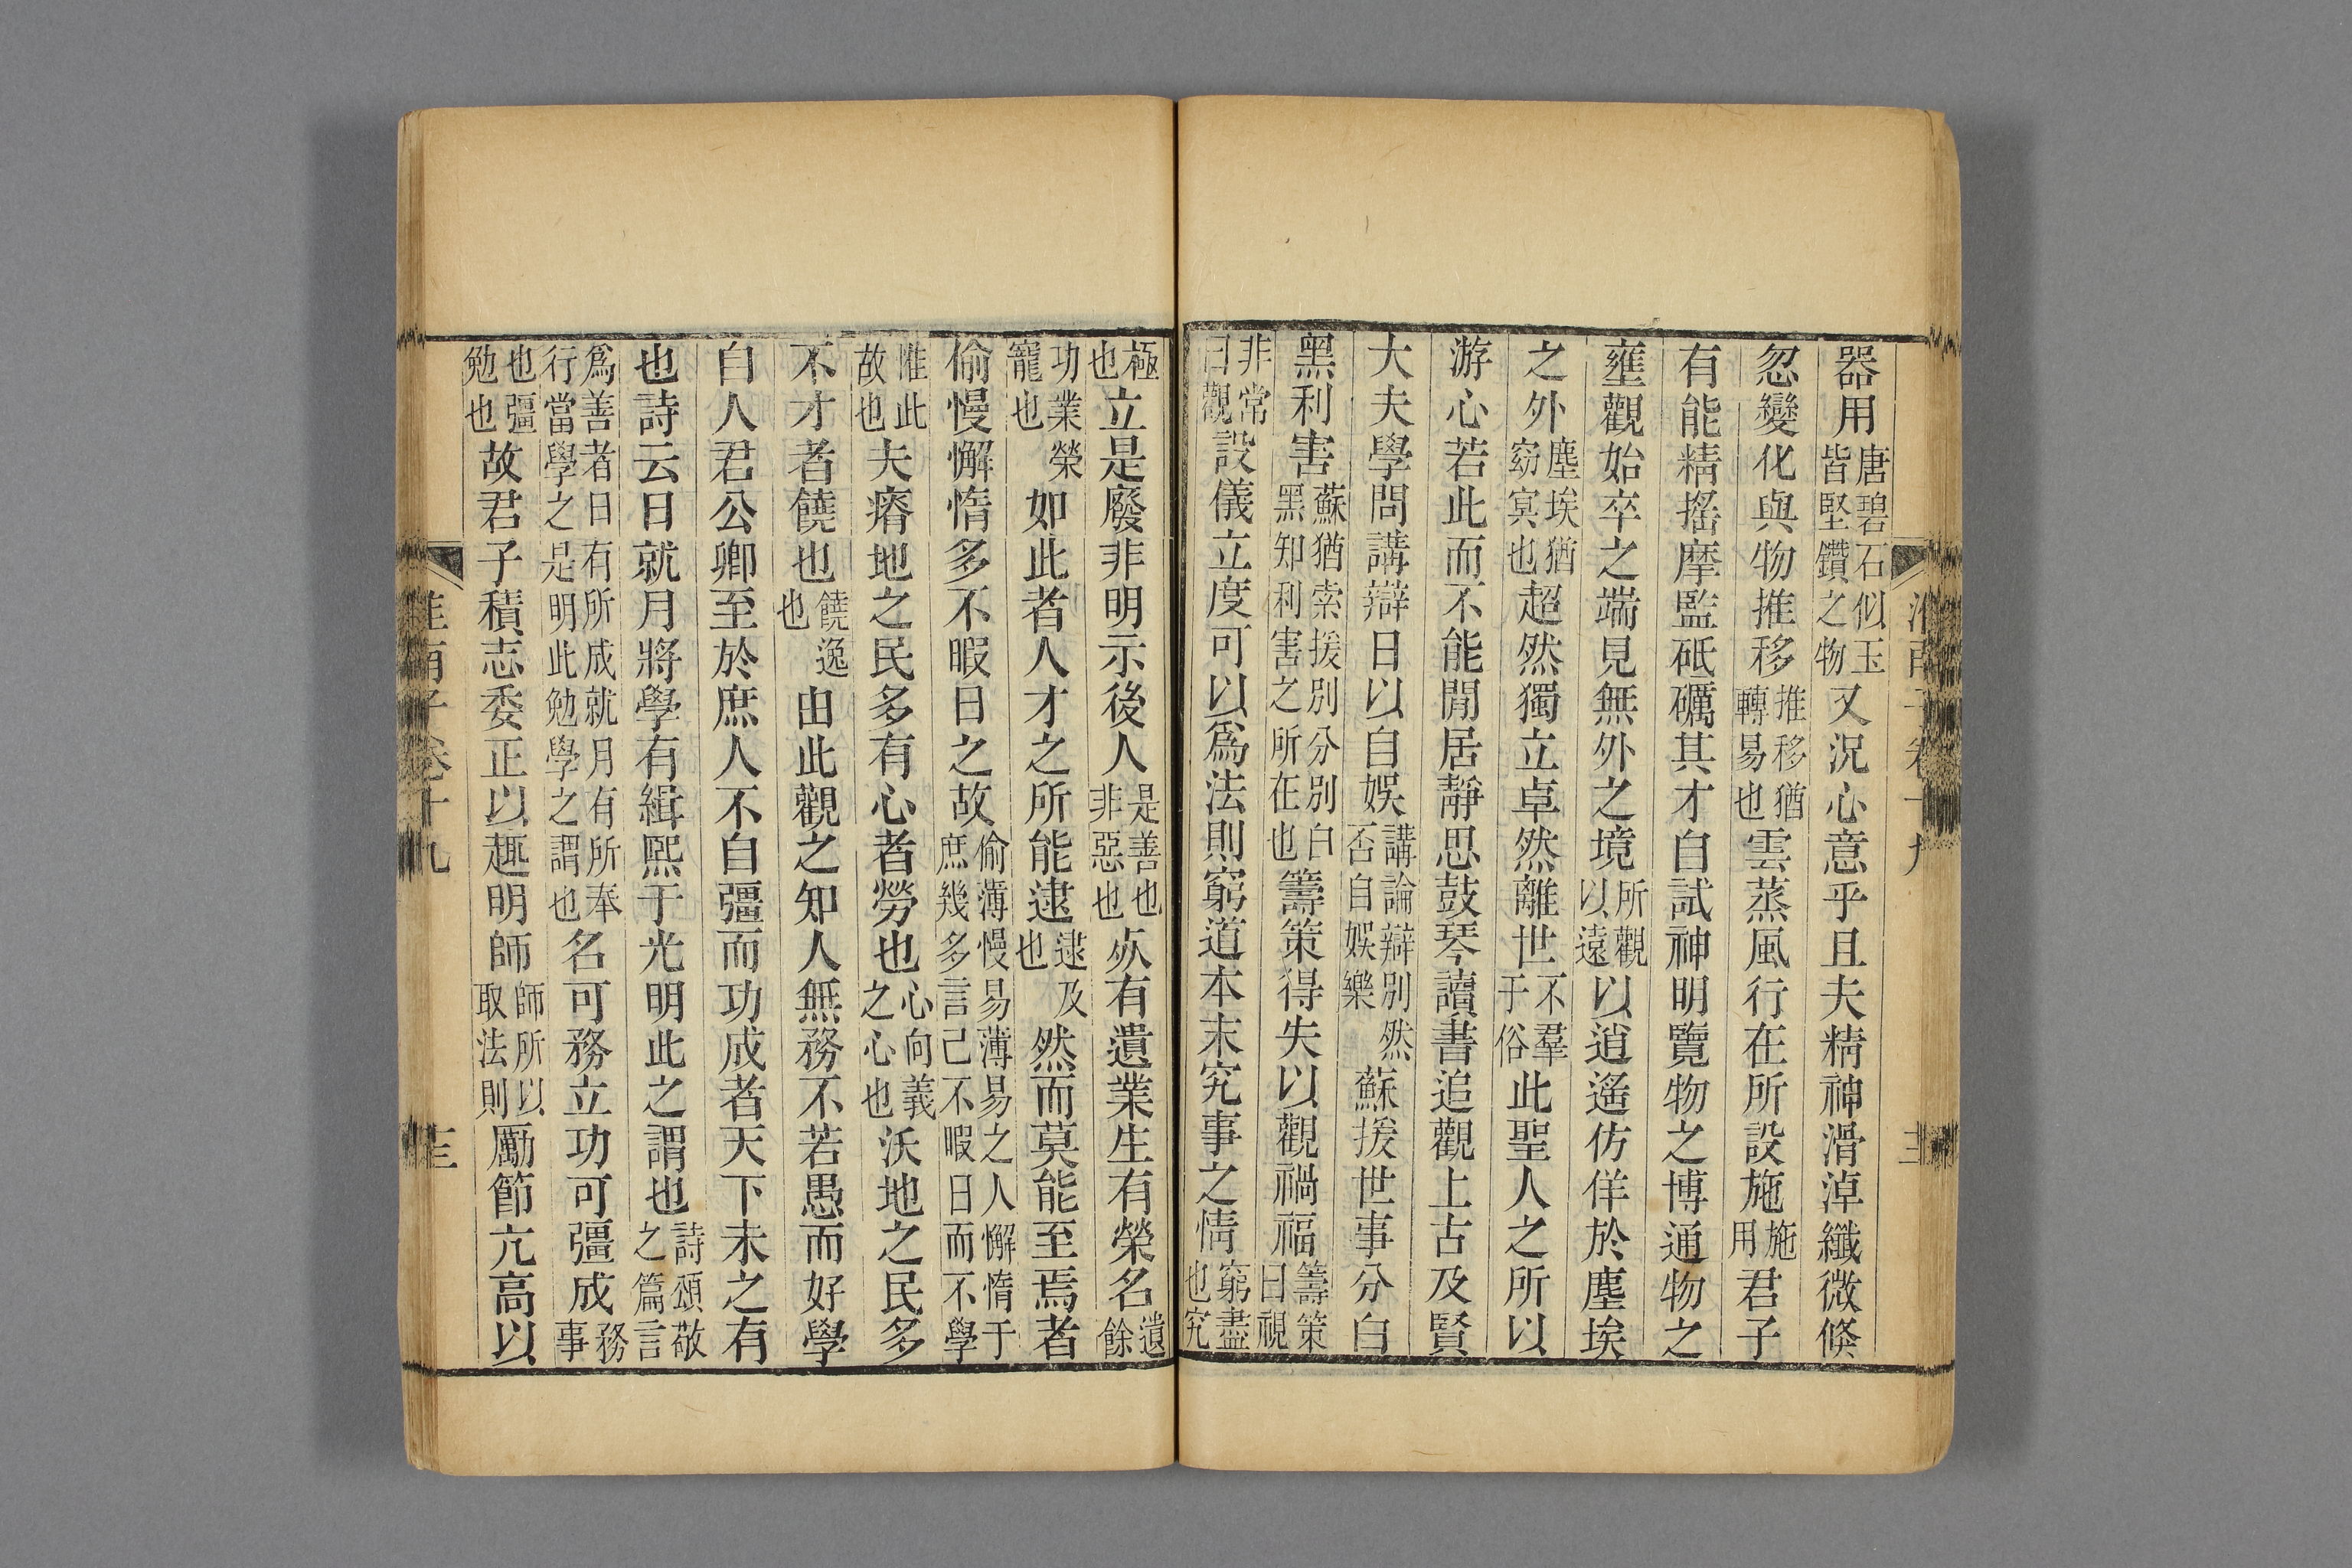 器用唐碧石似玉皆堅鑽之物又況心意乎且夫精神滑淖纖微倏
忽變化與物推移推移猶轉易也雲蒸風行在所設施施用君子
有能精搖摩監砥礪其才自試神明覽物之博通物之
壅觀始卒之端見無外之境所觀以遠以逍遙仿佯於塵埃
之外塵埃猶窈冥也超然獨立卓然離世不羣于俗此聖人之所以
游心若此而不能閒居靜思鼓琴讀書追觀上古及賢
大夫學問講辯日以自娛講論辯別然否自娛樂蘇援世事分白
黑利害蘇猶索援別分別白黑知利害之所在也籌策得失以觀禍福籌策日視
非常曰觀設儀立度可以爲法則窮道本末究事之情窮盡也究
極也立是廢非明示後人是善也非惡也死有遺業生有榮名遺餘
功業榮寵也如此者人才之所能逮逮及也然而莫能至焉者
偷慢懈惰多不暇日之故偷薄慢易薄易之人懈惰于庶幾多言己不暇日而不學
惟此故也夫瘠地之民多有心者勞也心向義之心也沃地之民多
不才者饒也饒逸也由此觀之知人無務不若愚而好學
自人君公卿至於庶人不自彊而功成者天下未之有
也詩云日就月將學有緝熙于光明此之謂也詩頌敬之篇言
爲善者日有所成就月有所奉行當學之是明此勉學之謂也名可務立功可彊成務事
也彊勉也故君子積志委正以趣明師師所以取法則厲節亢高以
淮南子卷十九